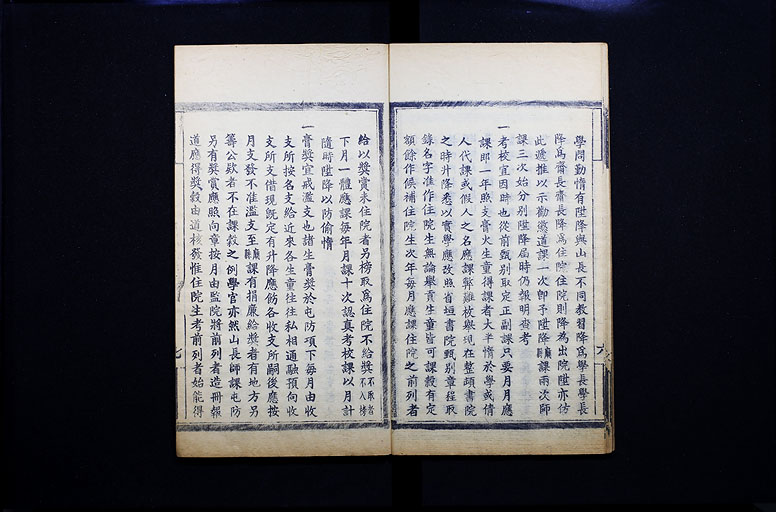 學問勤惰有陞降與山長不同教習降爲學長學長
降爲齋長齋長降爲住院住院則降爲出院陞亦仿
此遞推以示勸懲道課一次即予陞降廳縣課兩次師
課三次始分別陞降屆時仍報明查考
一考校宜因時也從前甄別取定正副課只要月月應
課即一年照支膏火生童得課者大半惰於學或倩
人代課或假人之名應課弊難枚舉現在整頓書院
之時升降悉以實學應改照省垣書院甄別章程取
錄名字准作住院生無論舉貢生童皆可課穀有定
額餘作候補住院生次年每月應課住院之前列者
給以獎賞未住院者另榜取爲住院不給獎不取者不入榜
下月一體應課每年月課十次認眞考校課以月計
隨時陞降以防偷惰
一膏獎宜戒濫支也諸生膏獎於屯防項下每月由收
支所按名支給近來各生童往往私相通融預向收
支所支借現旣定有升降應飭各收支所嗣後應按
月支發不准濫支至廳縣課有捐廉給獎者有地方另
籌公欵者不在課穀之例學官亦然山長師課屯防
另有獎賞應照向章按月由監院將前列者造冊報
道應得獎穀由道核發惟住院生考前列者始能得
六
七